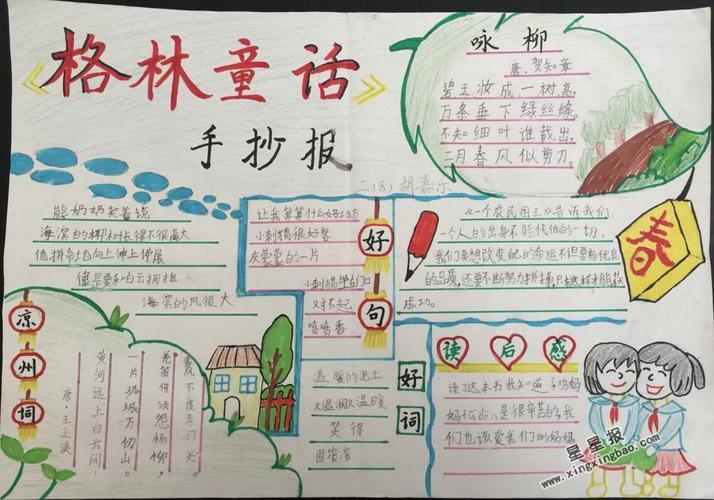 《格林童话》
手抄报
二(8) 胡嘉乐
咏柳
唐、贺知章
碧玉妆成一树高,
万条垂下绿丝绦,
不知细叶谁裁出,
二月春风似剪刀。
熊奶奶笑着说
海滨的柳树长得不很高大
他拼命地向上伸上伸展
像是要和白云拥抱
海滨的风很大
让我算算什么好
小刺猬很好客
灰蒙蒙的一片
小刺猬
对不起
喷喷香
好句
《一个农民国王》告诉我们,
一个人的出身不能代他的一切,
我们要想改变的命运不但要有优良
的品质,还要不断努力拼搏,只有这样才能获
成功。
春
凉州词
唐·王之涣
黄河远上白云间,
一片孤城万仞山。
羌笛何须怨杨柳,
春风不度玉门关。
温暖的泥土
又温润又温暖
笑得
圆滚滚
好词
读后感
读这本书我知道了鸡妈
妈是很辛苦的,我
们也该爱我们的妈妈
星星报
www.xingxingbao.com